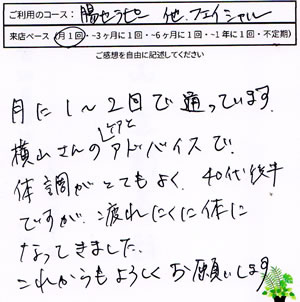 ご利用のコース： 腸セラピー 他、フェイシャル
来店ペース （月1回・~3ヶ月に1回・~6ヶ月に1回・~1年に1回・不定期）
ご感想を自由に記述してください
月に1~2回で通っています。
横山さんのケアとアドバイスで、
体調がとてもよく、40代後半
ですが、疲れにくに体に
なってきました。
これからもよろしくお願いします